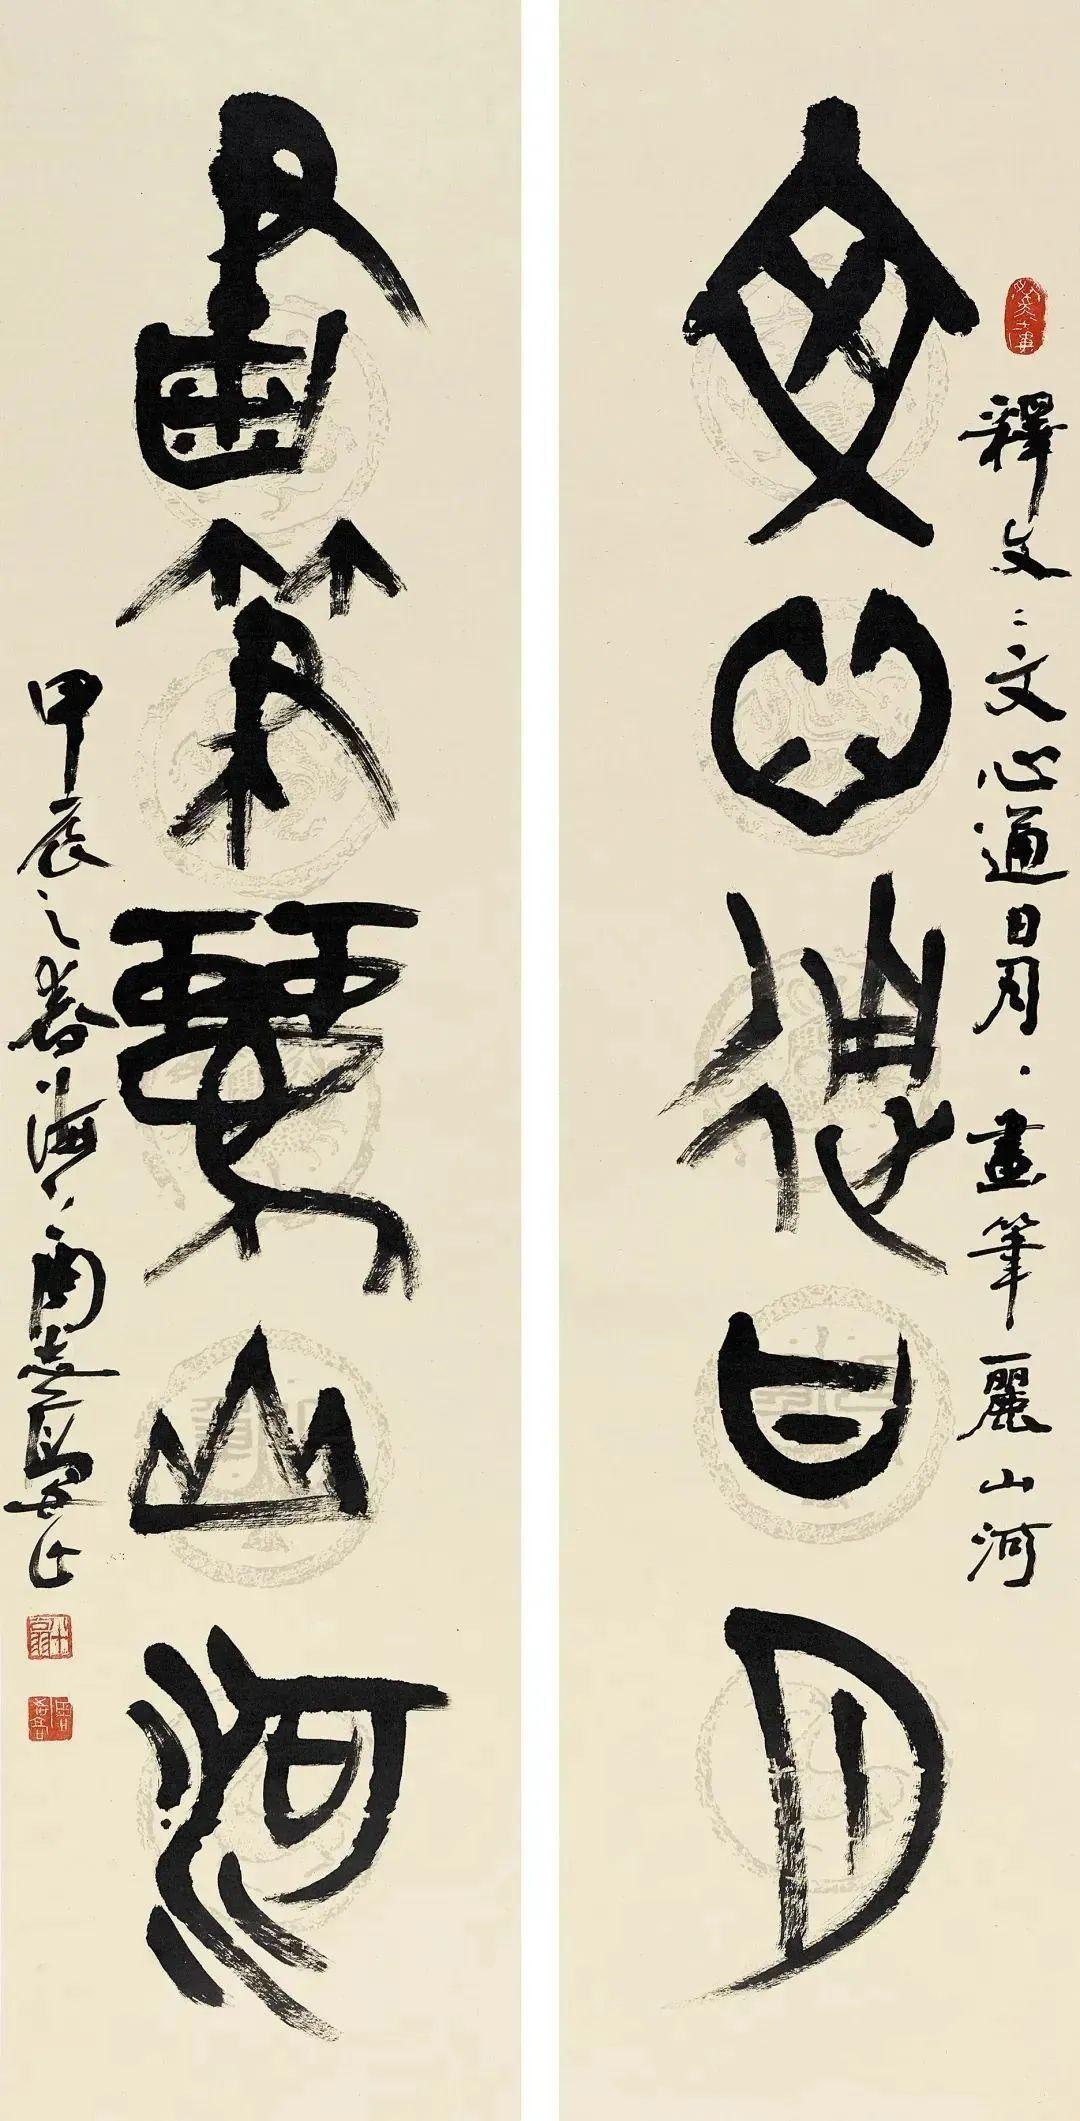 文心通日月
釋文：文心通日月．畫筆麗山河
畫筆麗山河
甲辰之春海